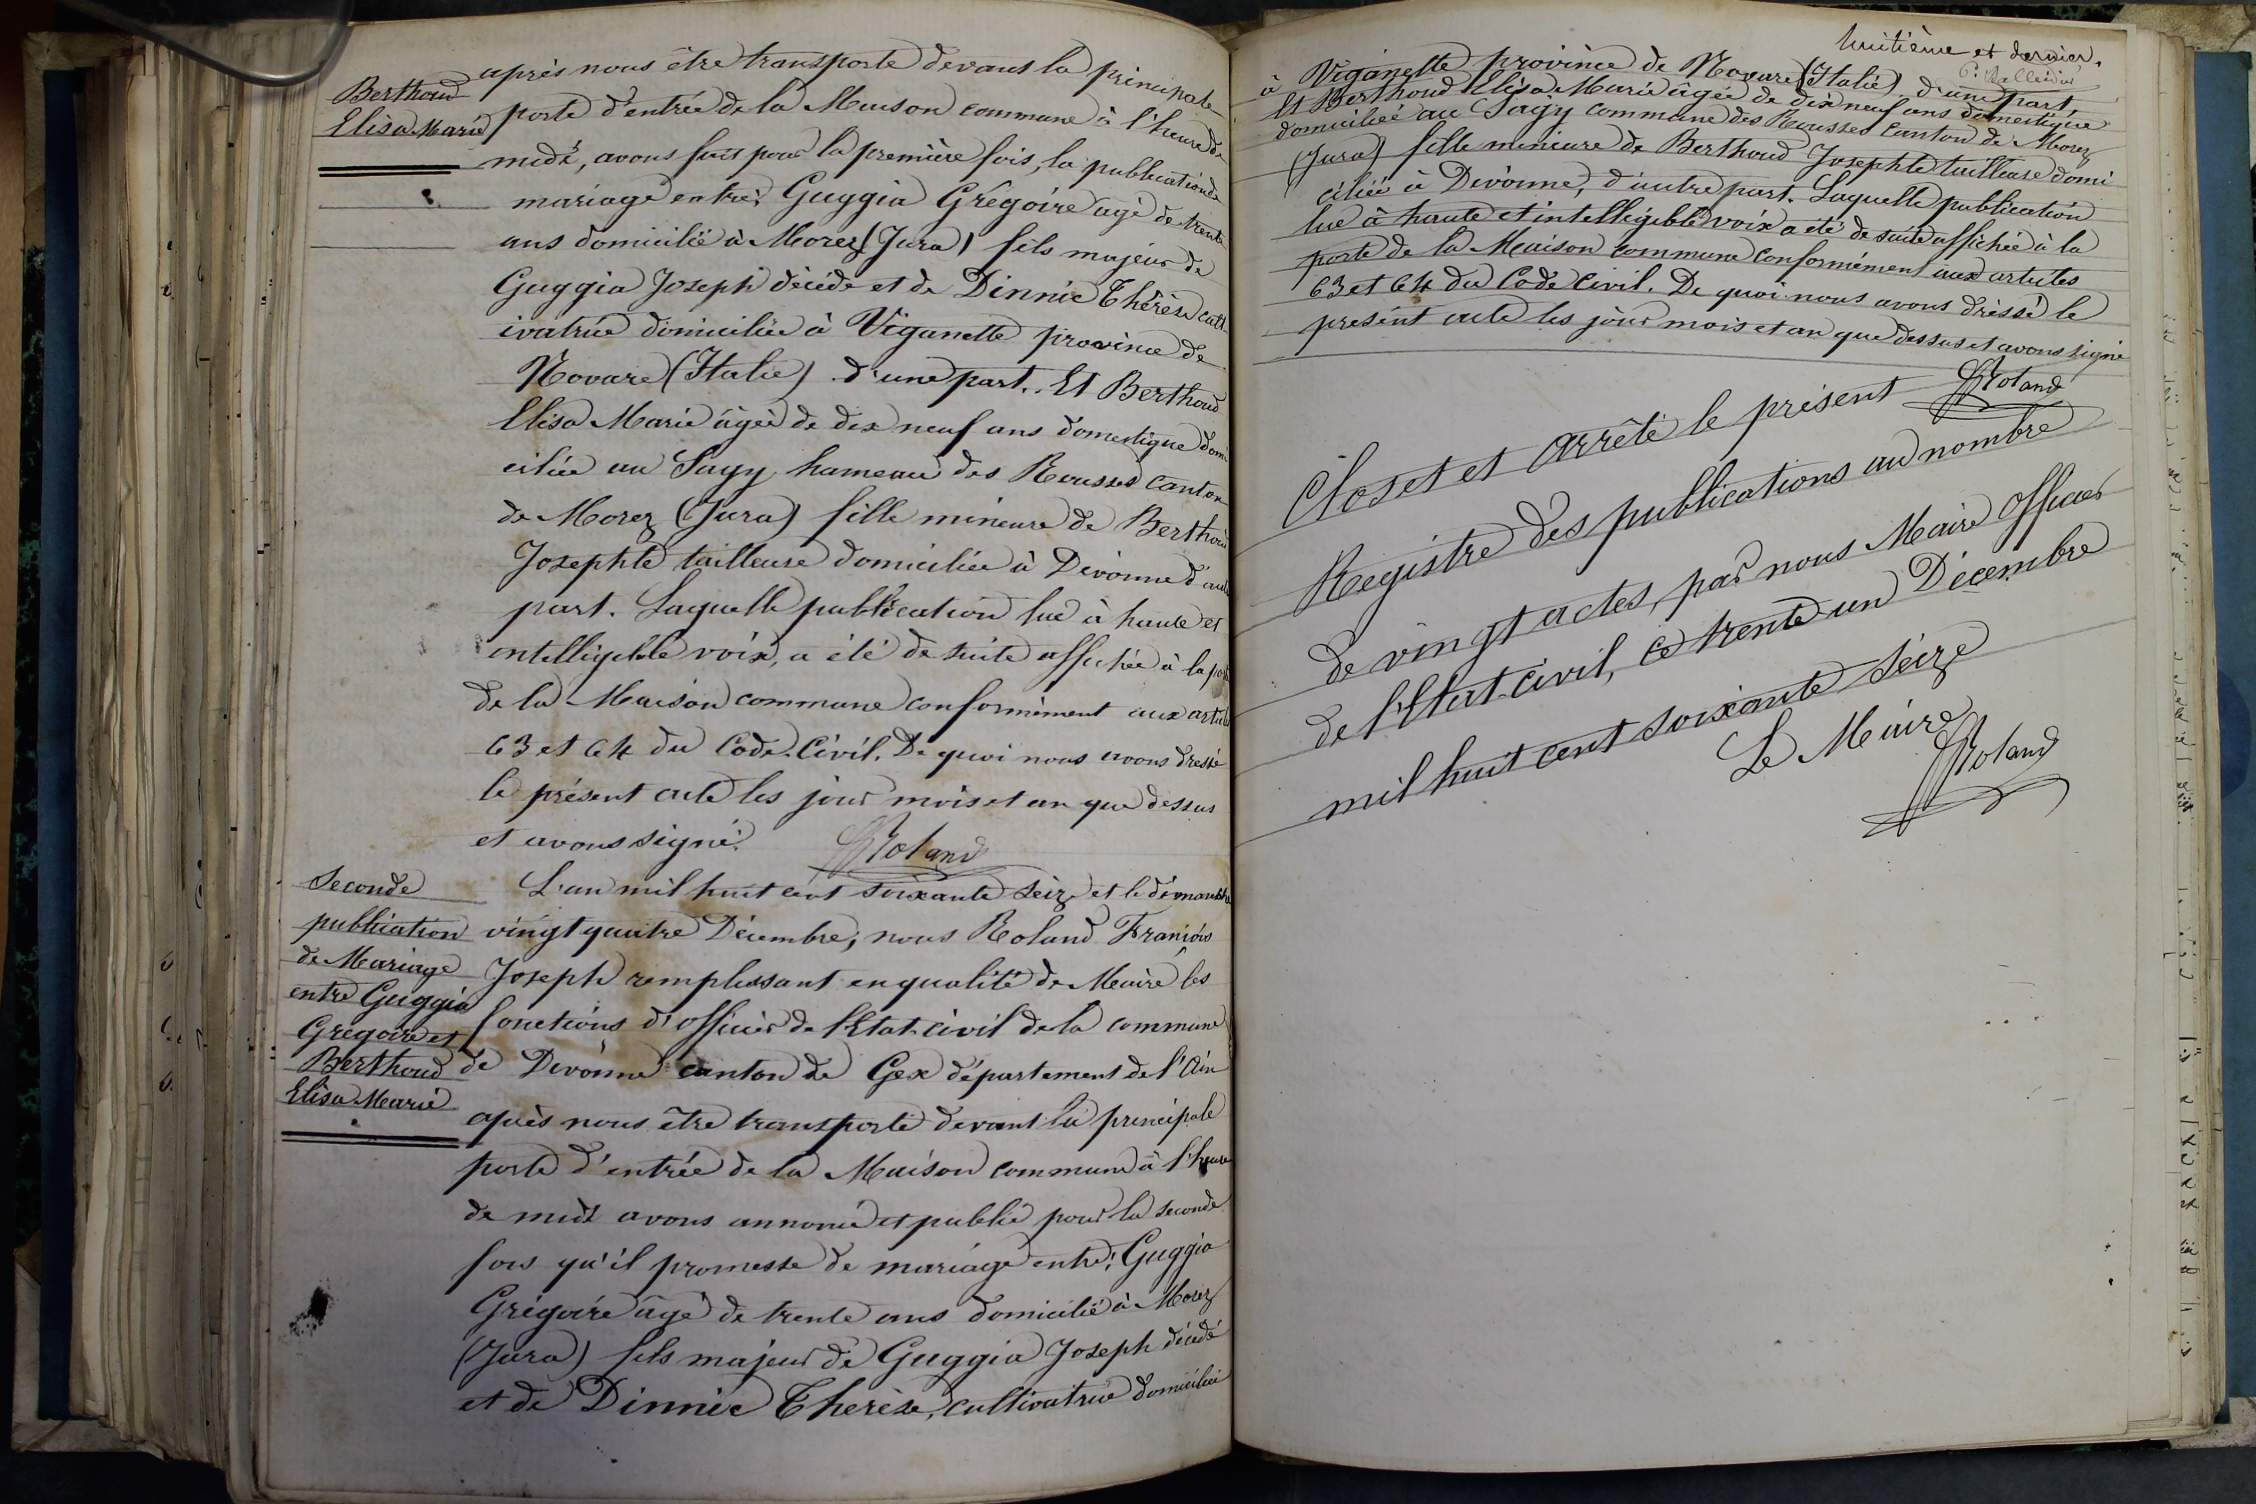 Berthoud
Elisa Marie
après nous être transporté devant la principale
porte d'entrée de la Maison commune à l'heure de
midi, avons fait pour la première fois, la publication de
mariage entre: Guggia Grégoire agé de trente
ans domicilié à Morez (Jura) fils majeur de
Guggia Joseph décédé et de Dinnie Thérèse cult
ivatrice domiciliée à Viganette province de
Novare (Italie) d'une part. Et Berthoud
Elisa Marie âgée de dix neuf ans domestique domi
ciliée au Sagy hameau des Rousses canton
de Morez (Jura) fille mineure de Berthoud
Josephte tailleuse domiciliée à Divonne d'autre
part. Laquelle publication lue à haute et
intelligible voix, a été de suite affichée à la porte
de la Maison commune conformément aux articles
63 et 64 du Code Civil. De quoi nous avons dressé
le présent acte les jour mois et an que dessus
et avons signé.
Roland
Seconde
publication
de Mariage
entre Guggia
Grégoire et
Berthoud
Elisa Marie
L'an mil huit cent soixante seize et le dimanche
vingt quatre Décembre, nous Roland François
Joseph remplissant en qualité de Maire les
fonctions d'officier de l'Etat-civil de la commune
de Divonne canton de Gex département de l'Ain
après nous être transporté devant la principale
porte d'entrée de la Maison commune à l'heure
de midi avons annoncé et publié pour la seconde
fois qu'il promesse de mariage entre: Guggia
Grégoire âgé de trente ans domicilié à Morez
(Jura) fils majeur de Guggia Joseph décédé
et de Dinnie Thérèse, cultivatrice domiciliée
huitième et dernier.
à Viganette province de Novare (Italie) d'une part,
Et Berthoud Elisa Marie âgée de dix neuf ans domestique
domiciliée au Sagy commune des Rousses canton de Morez
(Jura) fille mineure de Berthoud Josephte tailleuse domi
ciliée à Divonne, d'autre part. Laquelle publication
lue à haute et intelligible voix a été de suite affichée à la
porte de la Maison commune conformément aux articles
63 et 64 du Code Civil. De quoi nous avons dressé le
présent acte les jour mois et an que dessus et avons signé
Roland
Clos et et arrêté le présent
Registre des publications au nombre
de vingt actes, par nous Maire officier
de l'Etat-civil, ce trente un Décembre
mil huit cent soixante seize
Le Maire
Roland